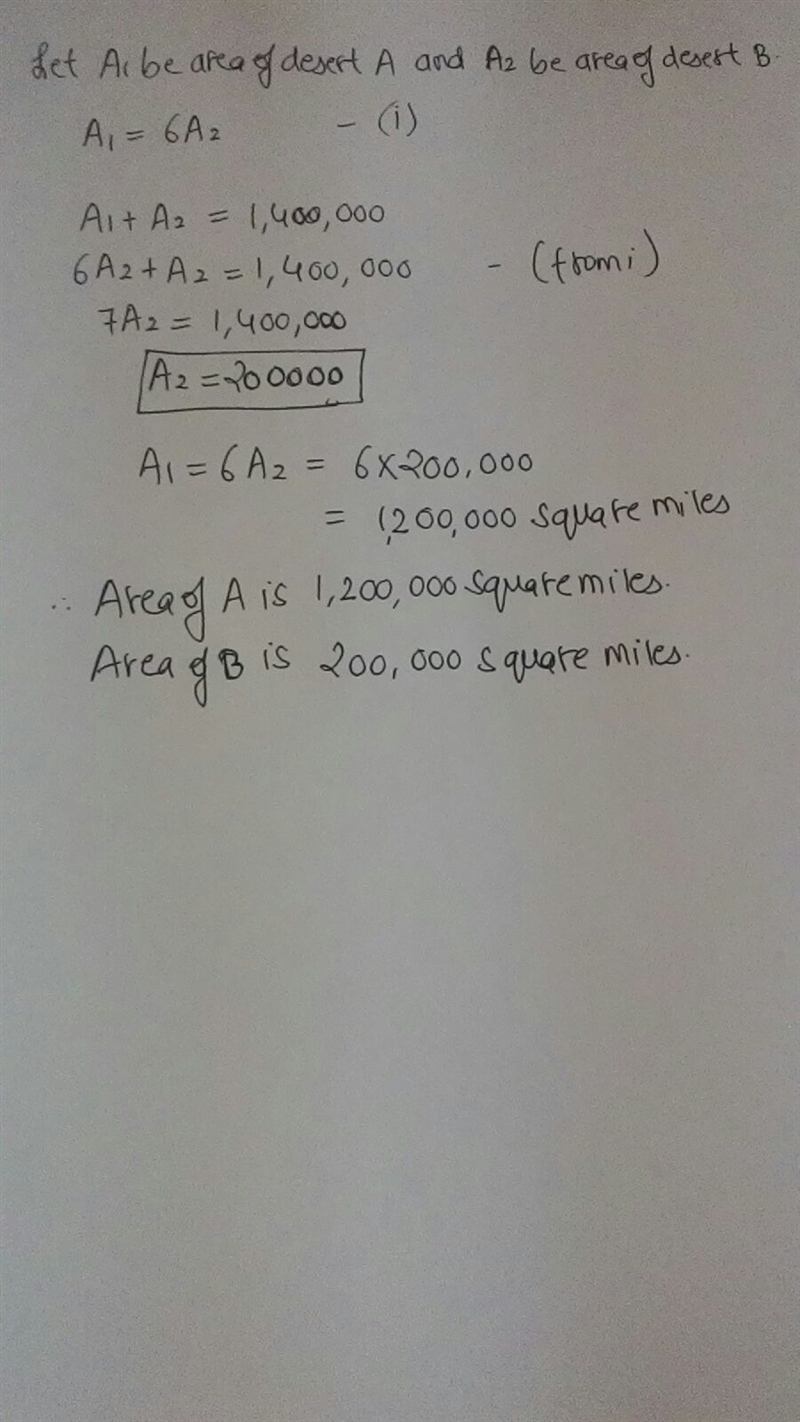 Let A1 be area of desert A and A2 be area of desert B.
A1 = 6A2 - (i)
A1 + A2 = 1,400,000
6A2 + A2 = 1,400,000 - (from i)
7A2 = 1,400,000
A2 = 200000
A1 = 6A2 = 6×200,000
= 1,200,000 square miles
∴ Area of A is 1,200,000 square miles.
Area of B is 200,000 square miles.